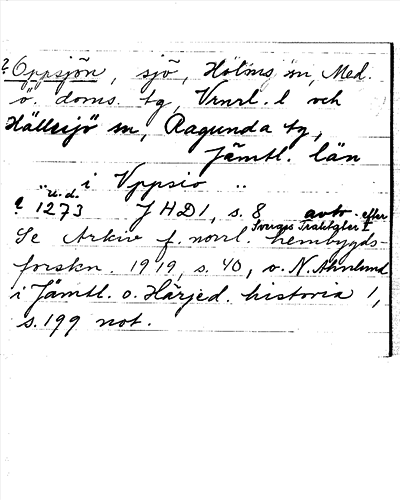 ? Oppsjön, sjö, Holms sn, Med.
ö. doms. tg, Vnrl. l och
Hällesjö sn, Ragunda tg,
Jämtl. län
i Vppsio ..
? 1273 u.d. JHD 1, s. 8 avtr. efter
Sveriges Traktater I
Se Arkiv f. norrl. hembygds-
forskn. 1919, s. 40, o. N. Ahnlund
i Jämtl. o. Härjed. historia 1,
s. 199 not.